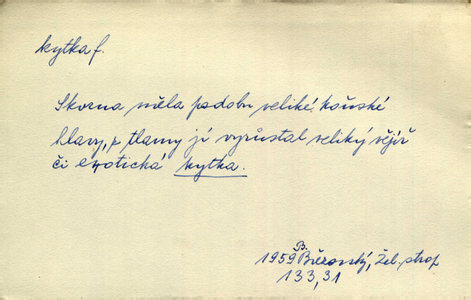 kytka f.
Skvrna měla podobu veliké koňské
hlavy, z tlamy jí vyrůstal veliký vějíř
či exotická kytka.
B.
1959 Březovský, Žel. strop
133,31